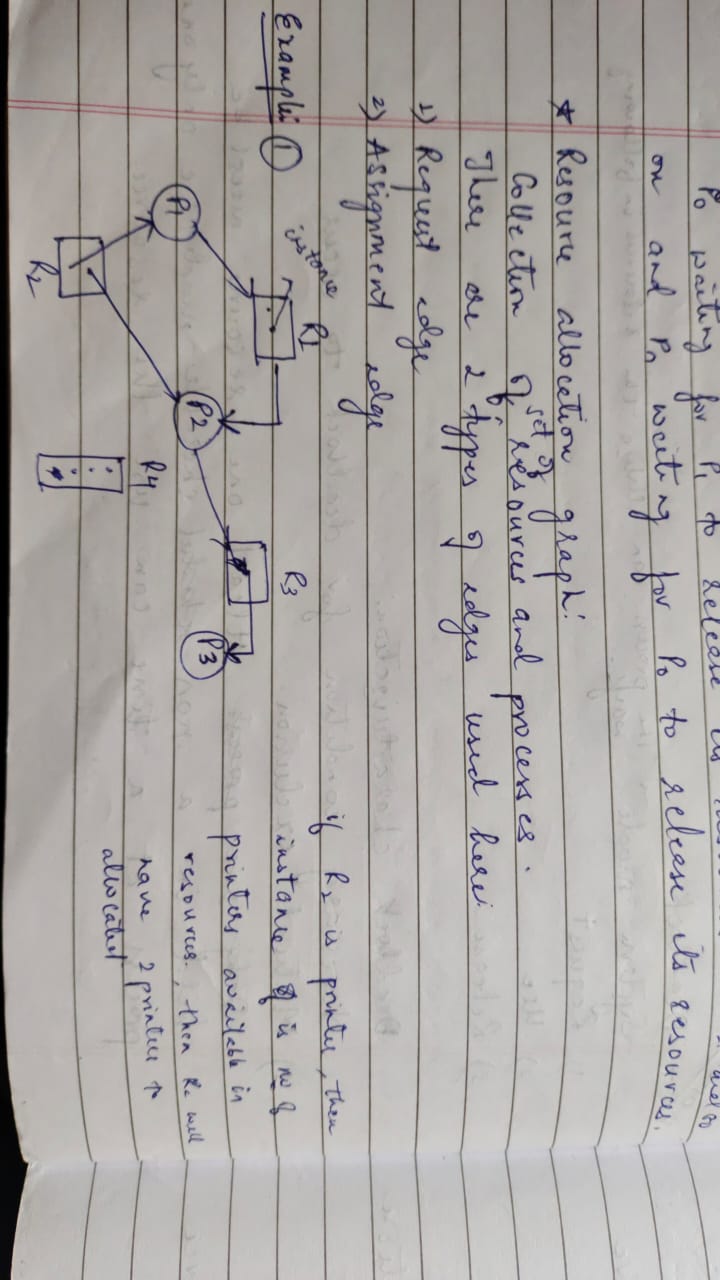 P0 waiting for P1 to release its
on and Pn waiting for P0 to release its resources.
* Resource allocation graph:
Collection of set of resources and processes.
There are 2 types of edges used here:
1) Request edge
2) Assignment edge
Example: 1
instance
R1
R3
P1
P2
P3
R2
R4
if R2 is printer, then
instance is no of
printers available in
resources, then R2 well
have 2 printers
allocated